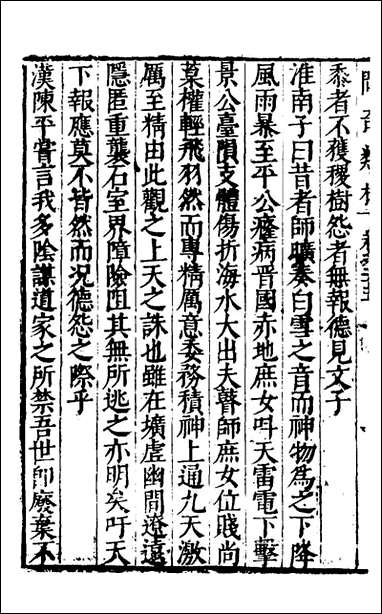 黍者不獲稷樹怨者無報德見文子
淮南子曰昔者師曠奏白雪之音而神物為之下降
風雨暴至平公癃病晋國赤地庶女叫天雷電下擊
景公臺隕支體傷折海水大出夫瞽師庶女位賤尚
葈權輕飛羽然而專精厲意委務積神上通九天激
厲至精由此觀之上天之誅也雖在壙虛幽間遼遠
隱匿重襲石室界障險阻其無所逃之亦明矣吁天
下報應莫不皆然而況德怨之際乎
漢陳平嘗言我多陰謀道家之所禁吾世即廢棄不